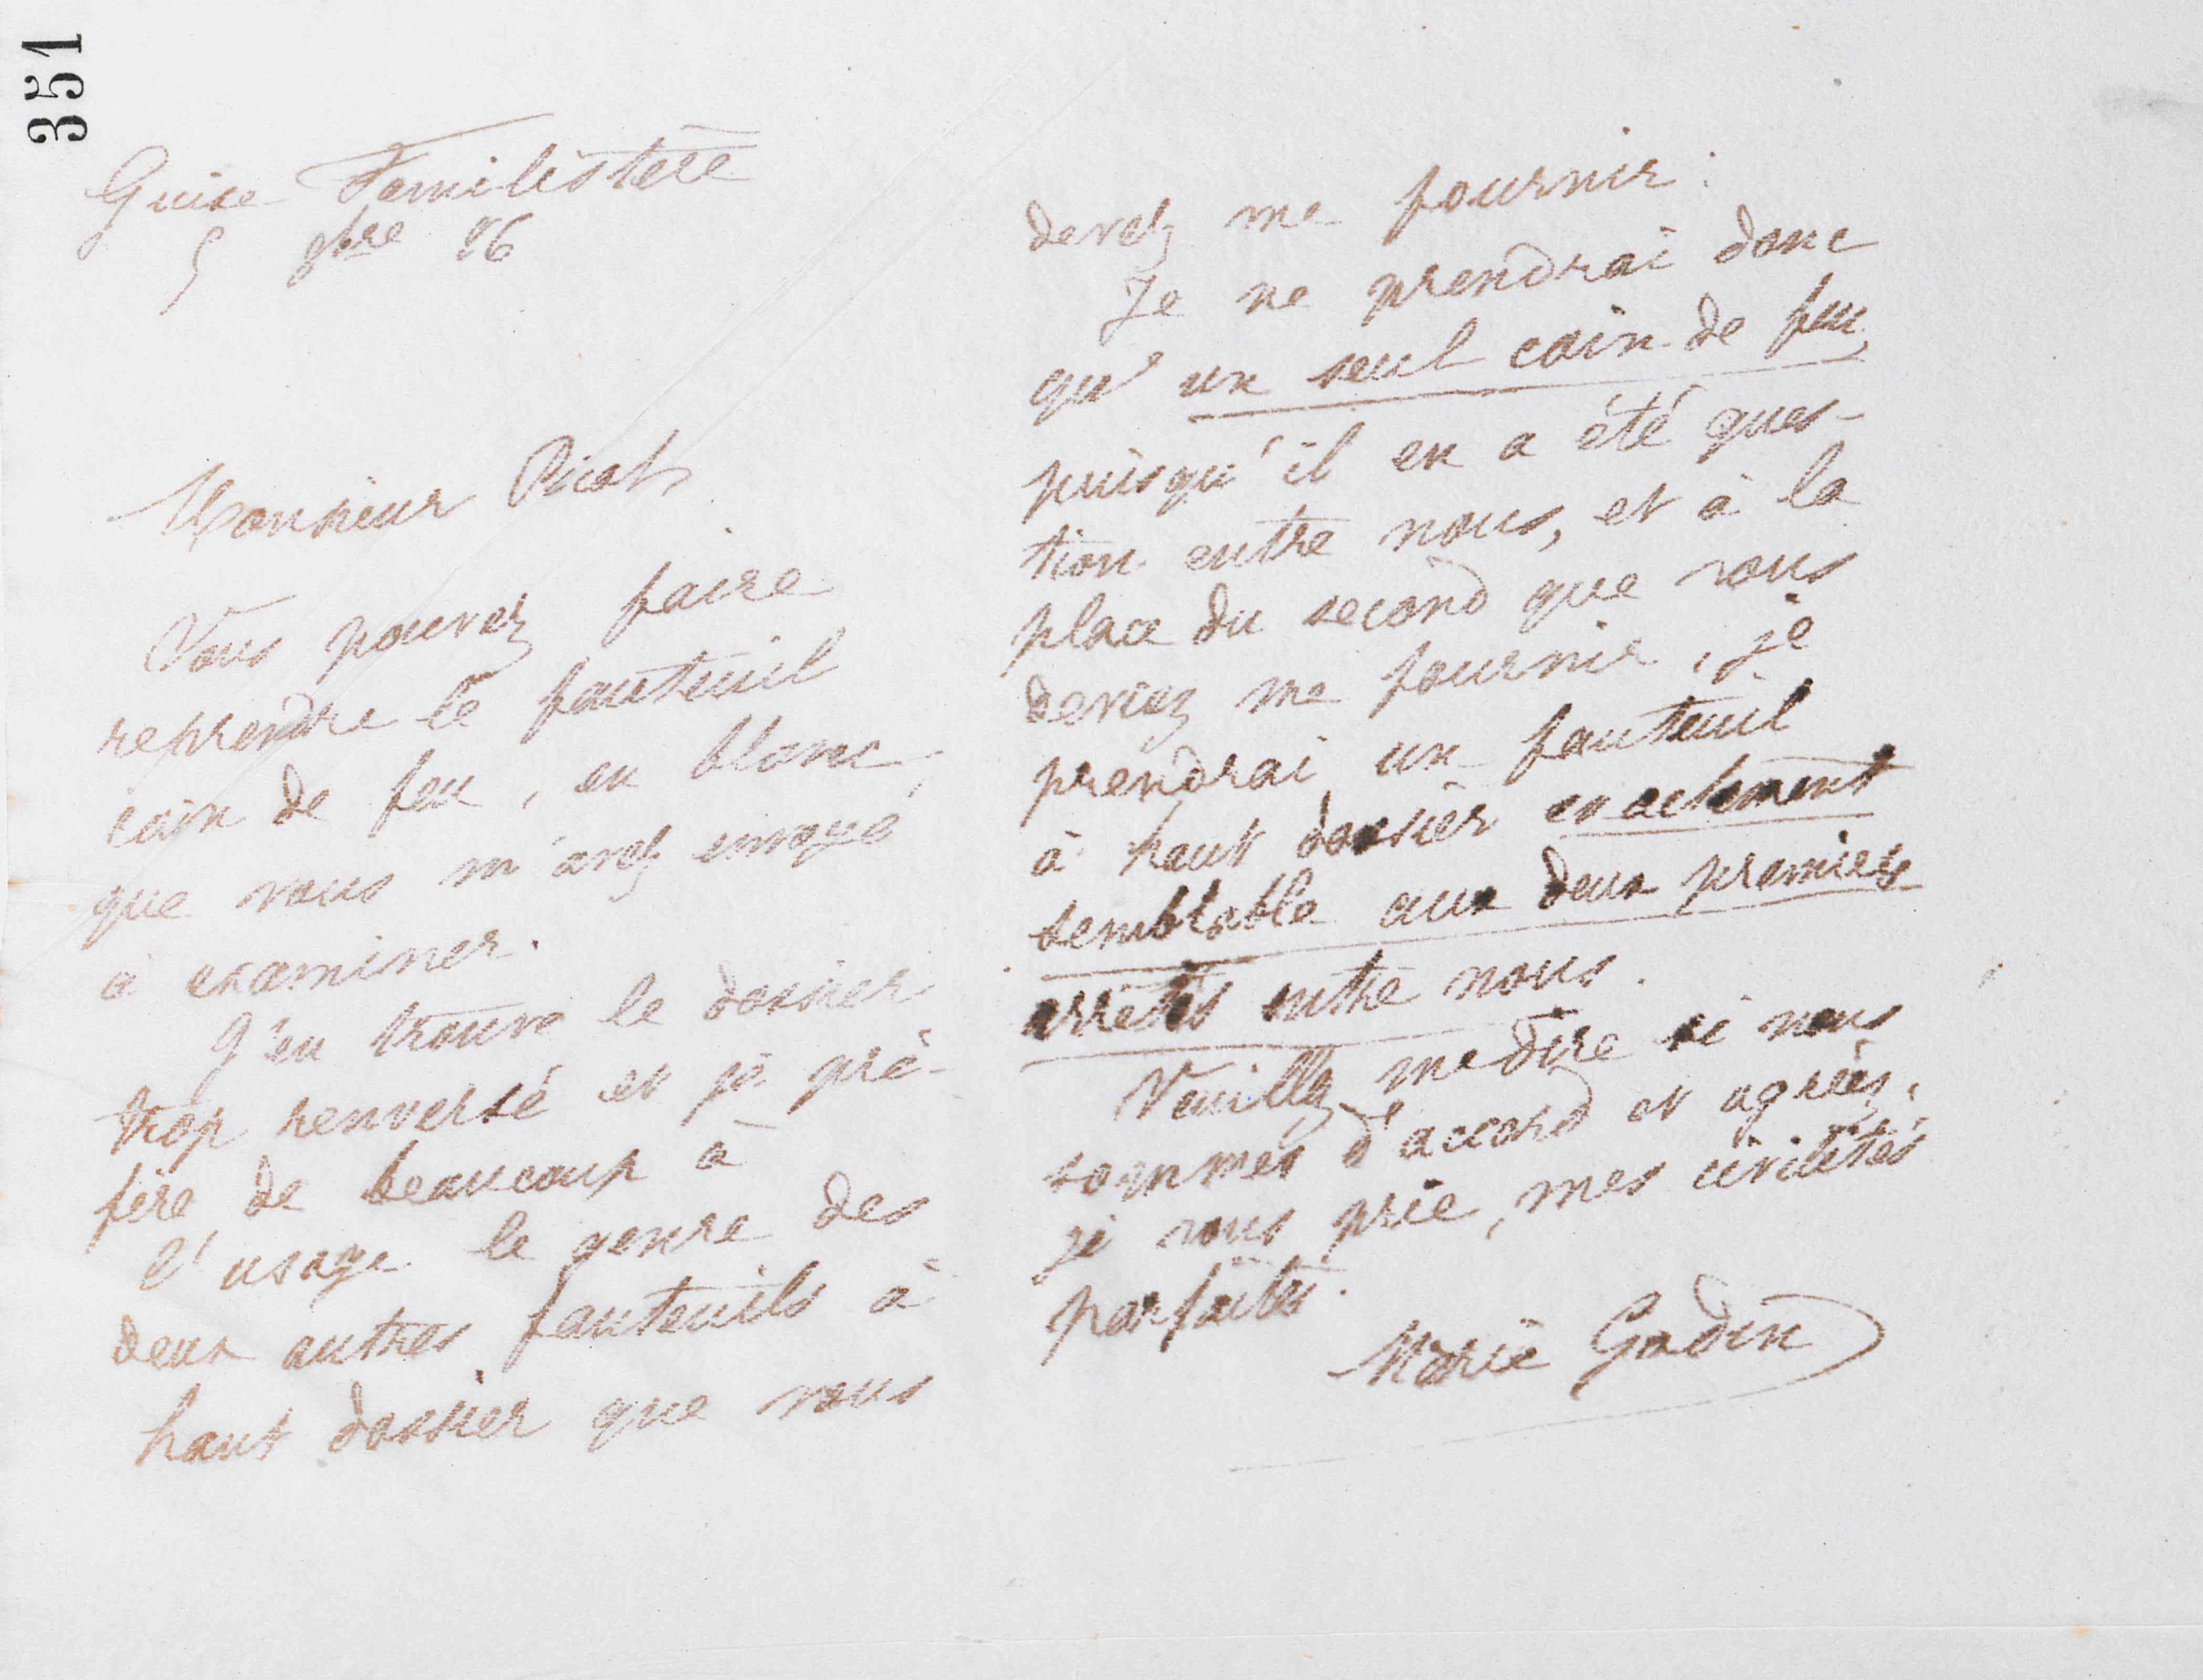 351
Guise Familistère
5 9bre 86
Monsieur Picat
Vous pouvez faire
reprendre le fauteuil
coin de feu, en blanc,
que vous m'avez envoyé
à examiner.
J'en trouve le dossier
trop renversé et je pré-
fère de beaucoup à
l'usage le genre des
deux autres fauteuils à
haut dossier que vous
devez me fournir.
Je ne prendrai donc
qu'un seul coin de feu,
puisqu'il en a été ques-
tion entre nous, et à la
place du second que vous
deviez me fournir, je
prendrai un fauteuil
à haut dossier exactement
semblable aux deux premiers
arrêtés entre nous.
Veuillez me dire si nous
sommes d'accord et agréez,
je vous prie, mes civilités
parfaites.
Marie Godin